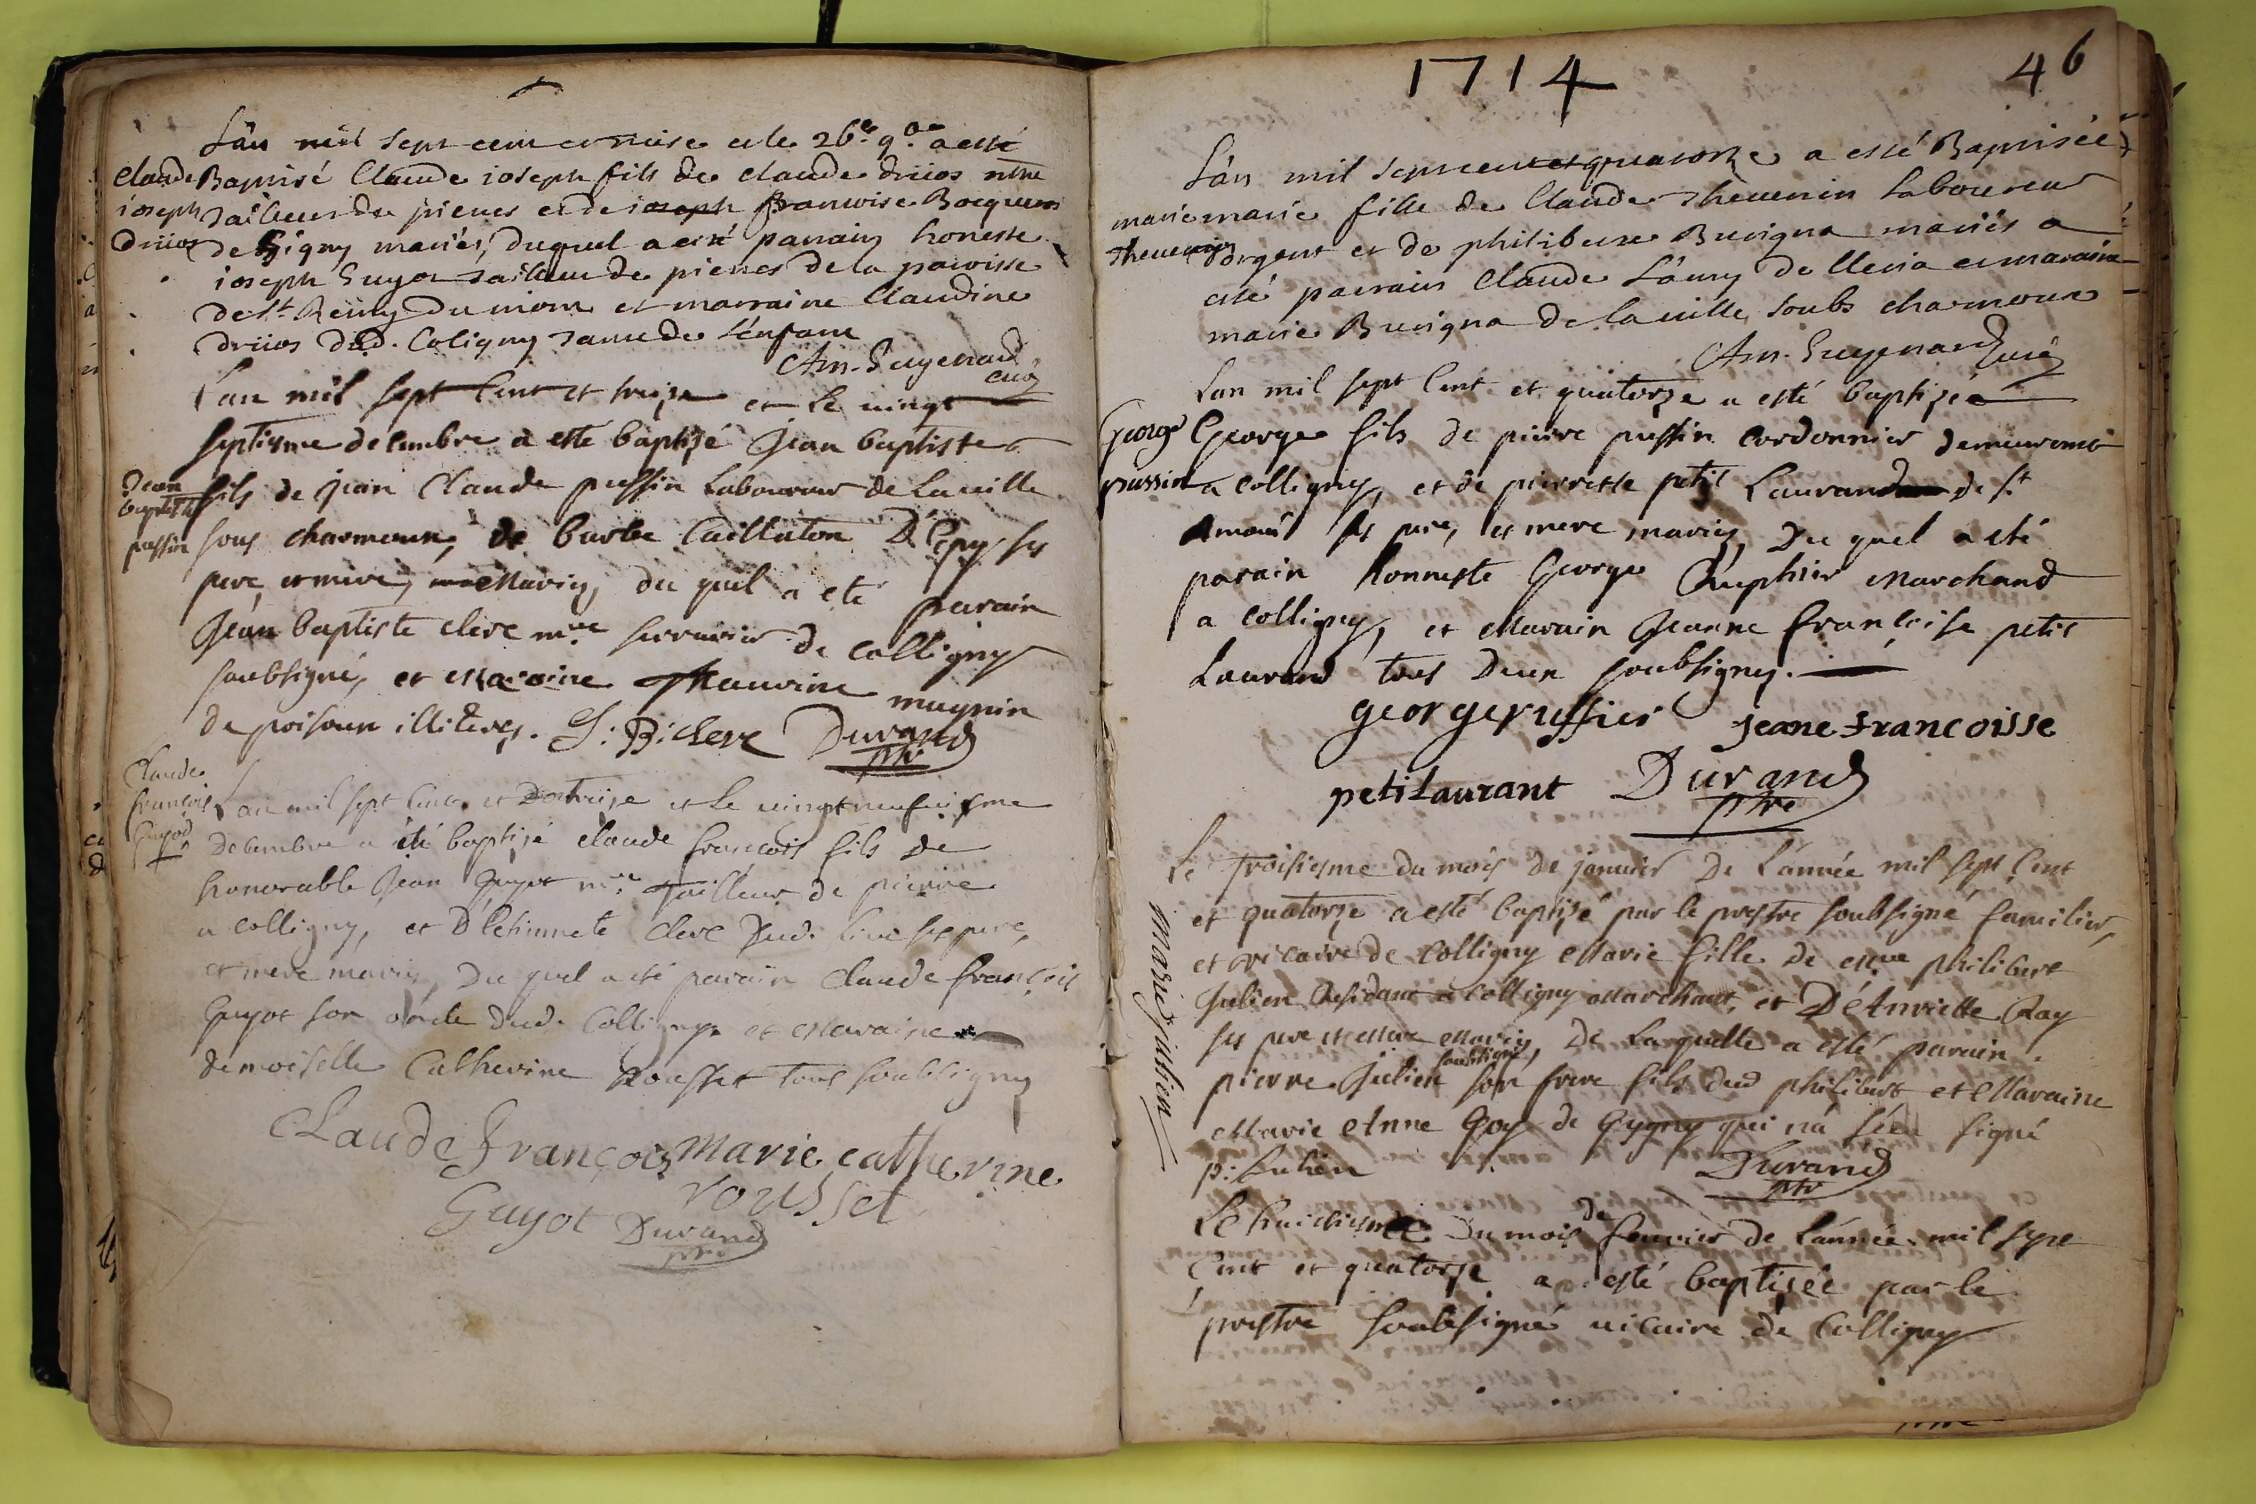 Lân mil sept cent et traise et le 26e 9bre a esté
Claude Baptisé Claude ioseph fils de claude driios mtre
ioseph tailleur de pieres et de ioseph francoise Bocquum
driios de Gigny mariés, duquel a esté parrain honeste
ioseph Guyot tailleur de pieres de la paroisse
de St Remy du mont et marraine Claudine
driios dud. Coligny tante de l'enfant
Am. Guyenard curé
L'an mil sept Cent et treize et Le vingt
septiesme decembre a esté baptizé Jean baptiste
Jean baptiste pussin
fils de Jean Claude pussin Laboureur de Laville
sous charmoux, de barbe Caillaton D'Epy ses
pere et mere, Mariez, du quel a eté parain
Jean baptiste clerc mtre serrurier de Colligny
soubsigné, et Maraine Thauvine mugnin
de poisoux illiterez. J: B: clerc Durand
ptre
Claude françois Guyod
L'an mil sept Cent et treize et Le vingt neufuiesme
decembre a eté baptizé claude francois fils de
honorable Jean Guyot mtre Tailleur de pierre
a colligny, et D'Estiennete clerc dud. Lieu ses pere,
et mere mariez, Du quel a eté parain Claude françois
Guyot son oncle dud. Colligny et Maraine
demoiselle Catherine Rousset tous soubsignez
Claude François Marie catherine
Guyot rousset
Durand
ptre
1714
46
Lân mil sept cent et quatorze a esté Baptisée
marie marie fille de Claude Thevenin laboureur
Thevenin dorgent et de philiberte Buvigna mariés a
esté parrain Claude Lâmy de lleria et maraine
marie Buvigna de la ville soubs charmoux
Am. Guyenard curé
Lan mil sept Cent et quatorze a esté baptizé
George George fils de pierre pussin Cordonnier demeurant
pussin a colligny, et de pierrette petit Laurand de St
Amour ses pere, et mere mariez, Du quel a eté
parain honneste George Ruphier Marchand
a colligny, et Marain Jeanne françoise petit
Laurand tous Deux soubsignez.
george ruffier jeane francoisse
petilaurant Durand
ptre
Le troisiesme du mois de janvier De L'année mil sept Cent
et quatorze a esté baptizé par le prestre soubsigné familier,
et vicaire de Colligny Marie fille de Mtre philibert
Julien Residant a Colligny Marchant, et D'Anvielle Ray
ses pere et Mere Mariez, De Laquelle a esté parain
pierre Julien soubsigné son frere fils dud philibert et Maraine
Marie Anne Goy de Gygny qui n'a sceu signé
p: Julien Durand
ptre
Marie julien
Le huictiesme Du mois de fevrier de L'année mil sept
Cent et quatorze a esté baptisée par le
prestre soubsigné vicaire de Colligny